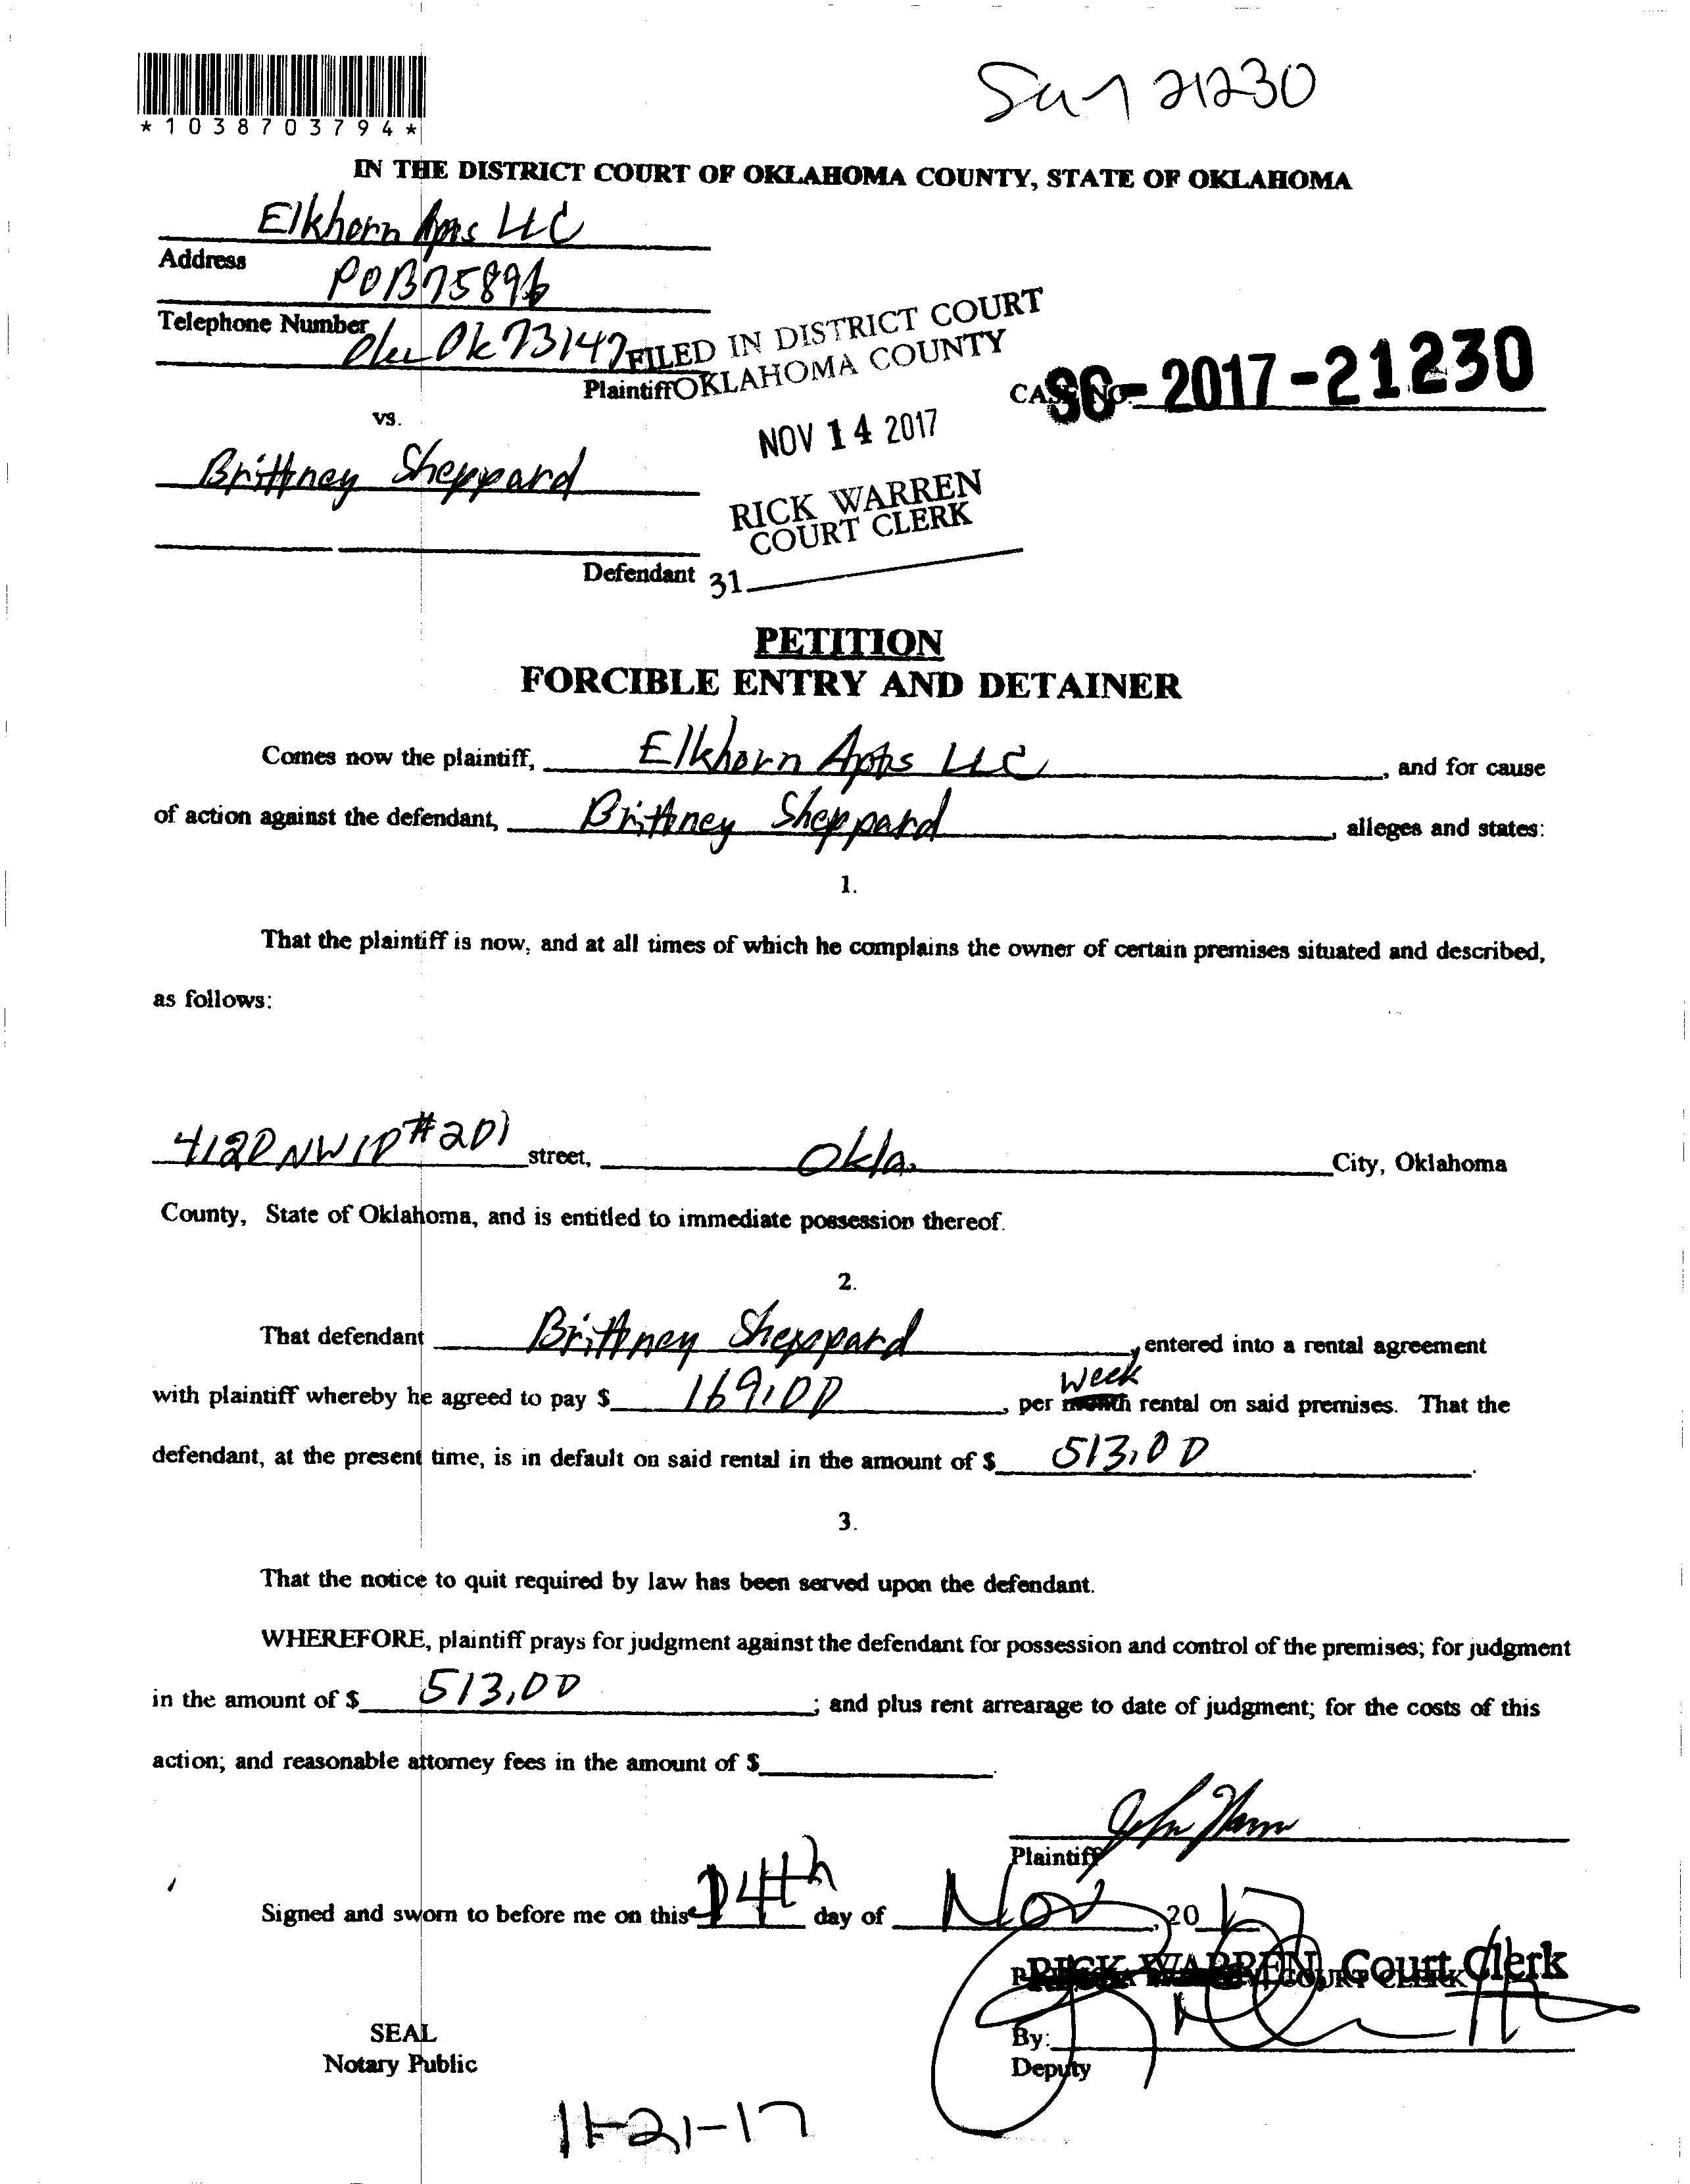 *1038703794*
21230
IN THE DISTRICT COURT OF OKLAHOMA COUNTY, STATE OF OKLAHOMA
Elkhorn Apts LLC
Address
POB 75896
Telephone Number
Ok 73147
FILED IN DISTRICT COURT
OKLAHOMA COUNTY
Plaintiff
CASE NO. SC-2017-21230
vs.
NOV 14 2017
Brittney Sheppard
RICK WARREN
COURT CLERK
Defendant
31
PETITION
FORCIBLE ENTRY AND DETAINER
Comes now the plaintiff, Elkhorn Apts LLC, and for cause
of action against the defendant, Brittney Sheppard, alleges and states:
1.
That the plaintiff is now, and at all times of which he complains the owner of certain premises situated and described,
as follows:
4120 NW 10 #201 street, Okla. City, Oklahoma
County, State of Oklahoma, and is entitled to immediate possession thereof.
2.
That defendant Brittney Sheppard, entered into a rental agreement
week
with plaintiff whereby he agreed to pay $ 169.00, per month rental on said premises. That the
defendant, at the present time, is in default on said rental in the amount of $ 513.00.
3.
That the notice to quit required by law has been served upon the defendant.
WHEREFORE, plaintiff prays for judgment against the defendant for possession and control of the premises; for judgment
in the amount of $ 513.00; and plus rent arrearage to date of judgment; for the costs of this
action; and reasonable attorney fees in the amount of $.
Plaintiff
Signed and sworn to before me on this 14th day of Nov, 2017
RICK WARREN, Court Clerk
COURT CLERK
SEAL
By:
Notary Public
Deputy
11-21-17